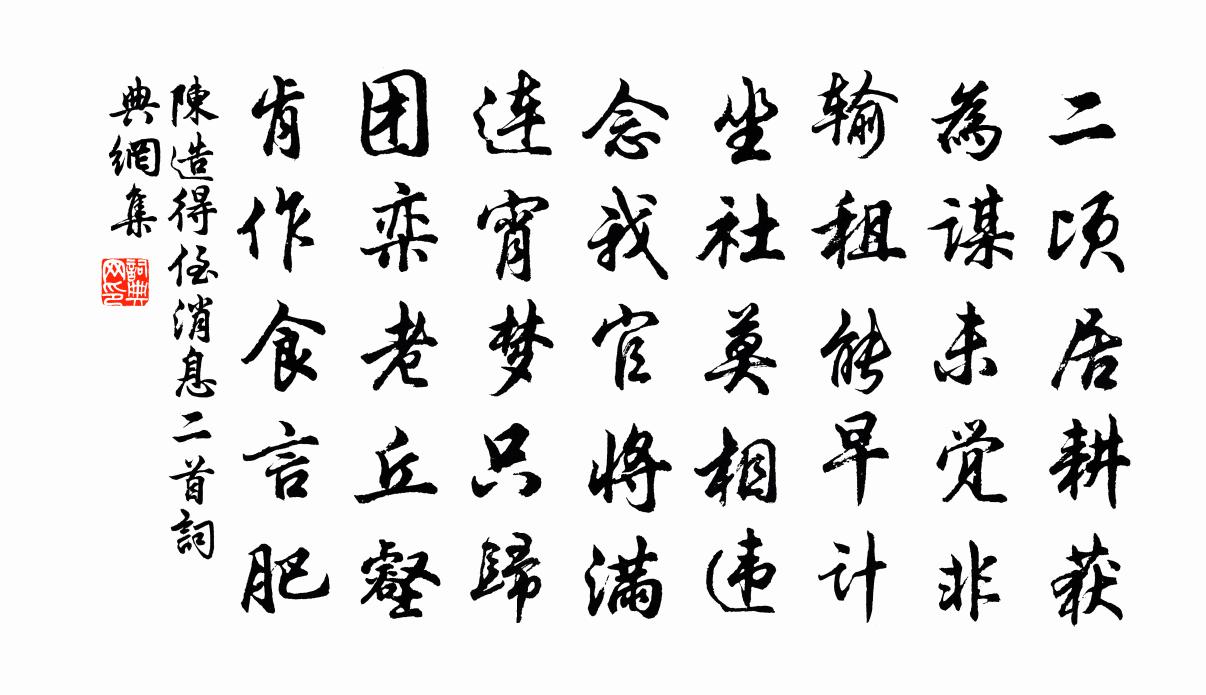 二顷居耕获
為谋未觉非
输租能早计
坐社莫相违
念我官将满
连宵梦只歸
团栾老丘壑
肯作食言肥
陳造得侄消息二首詞
典網集
詞典
网印